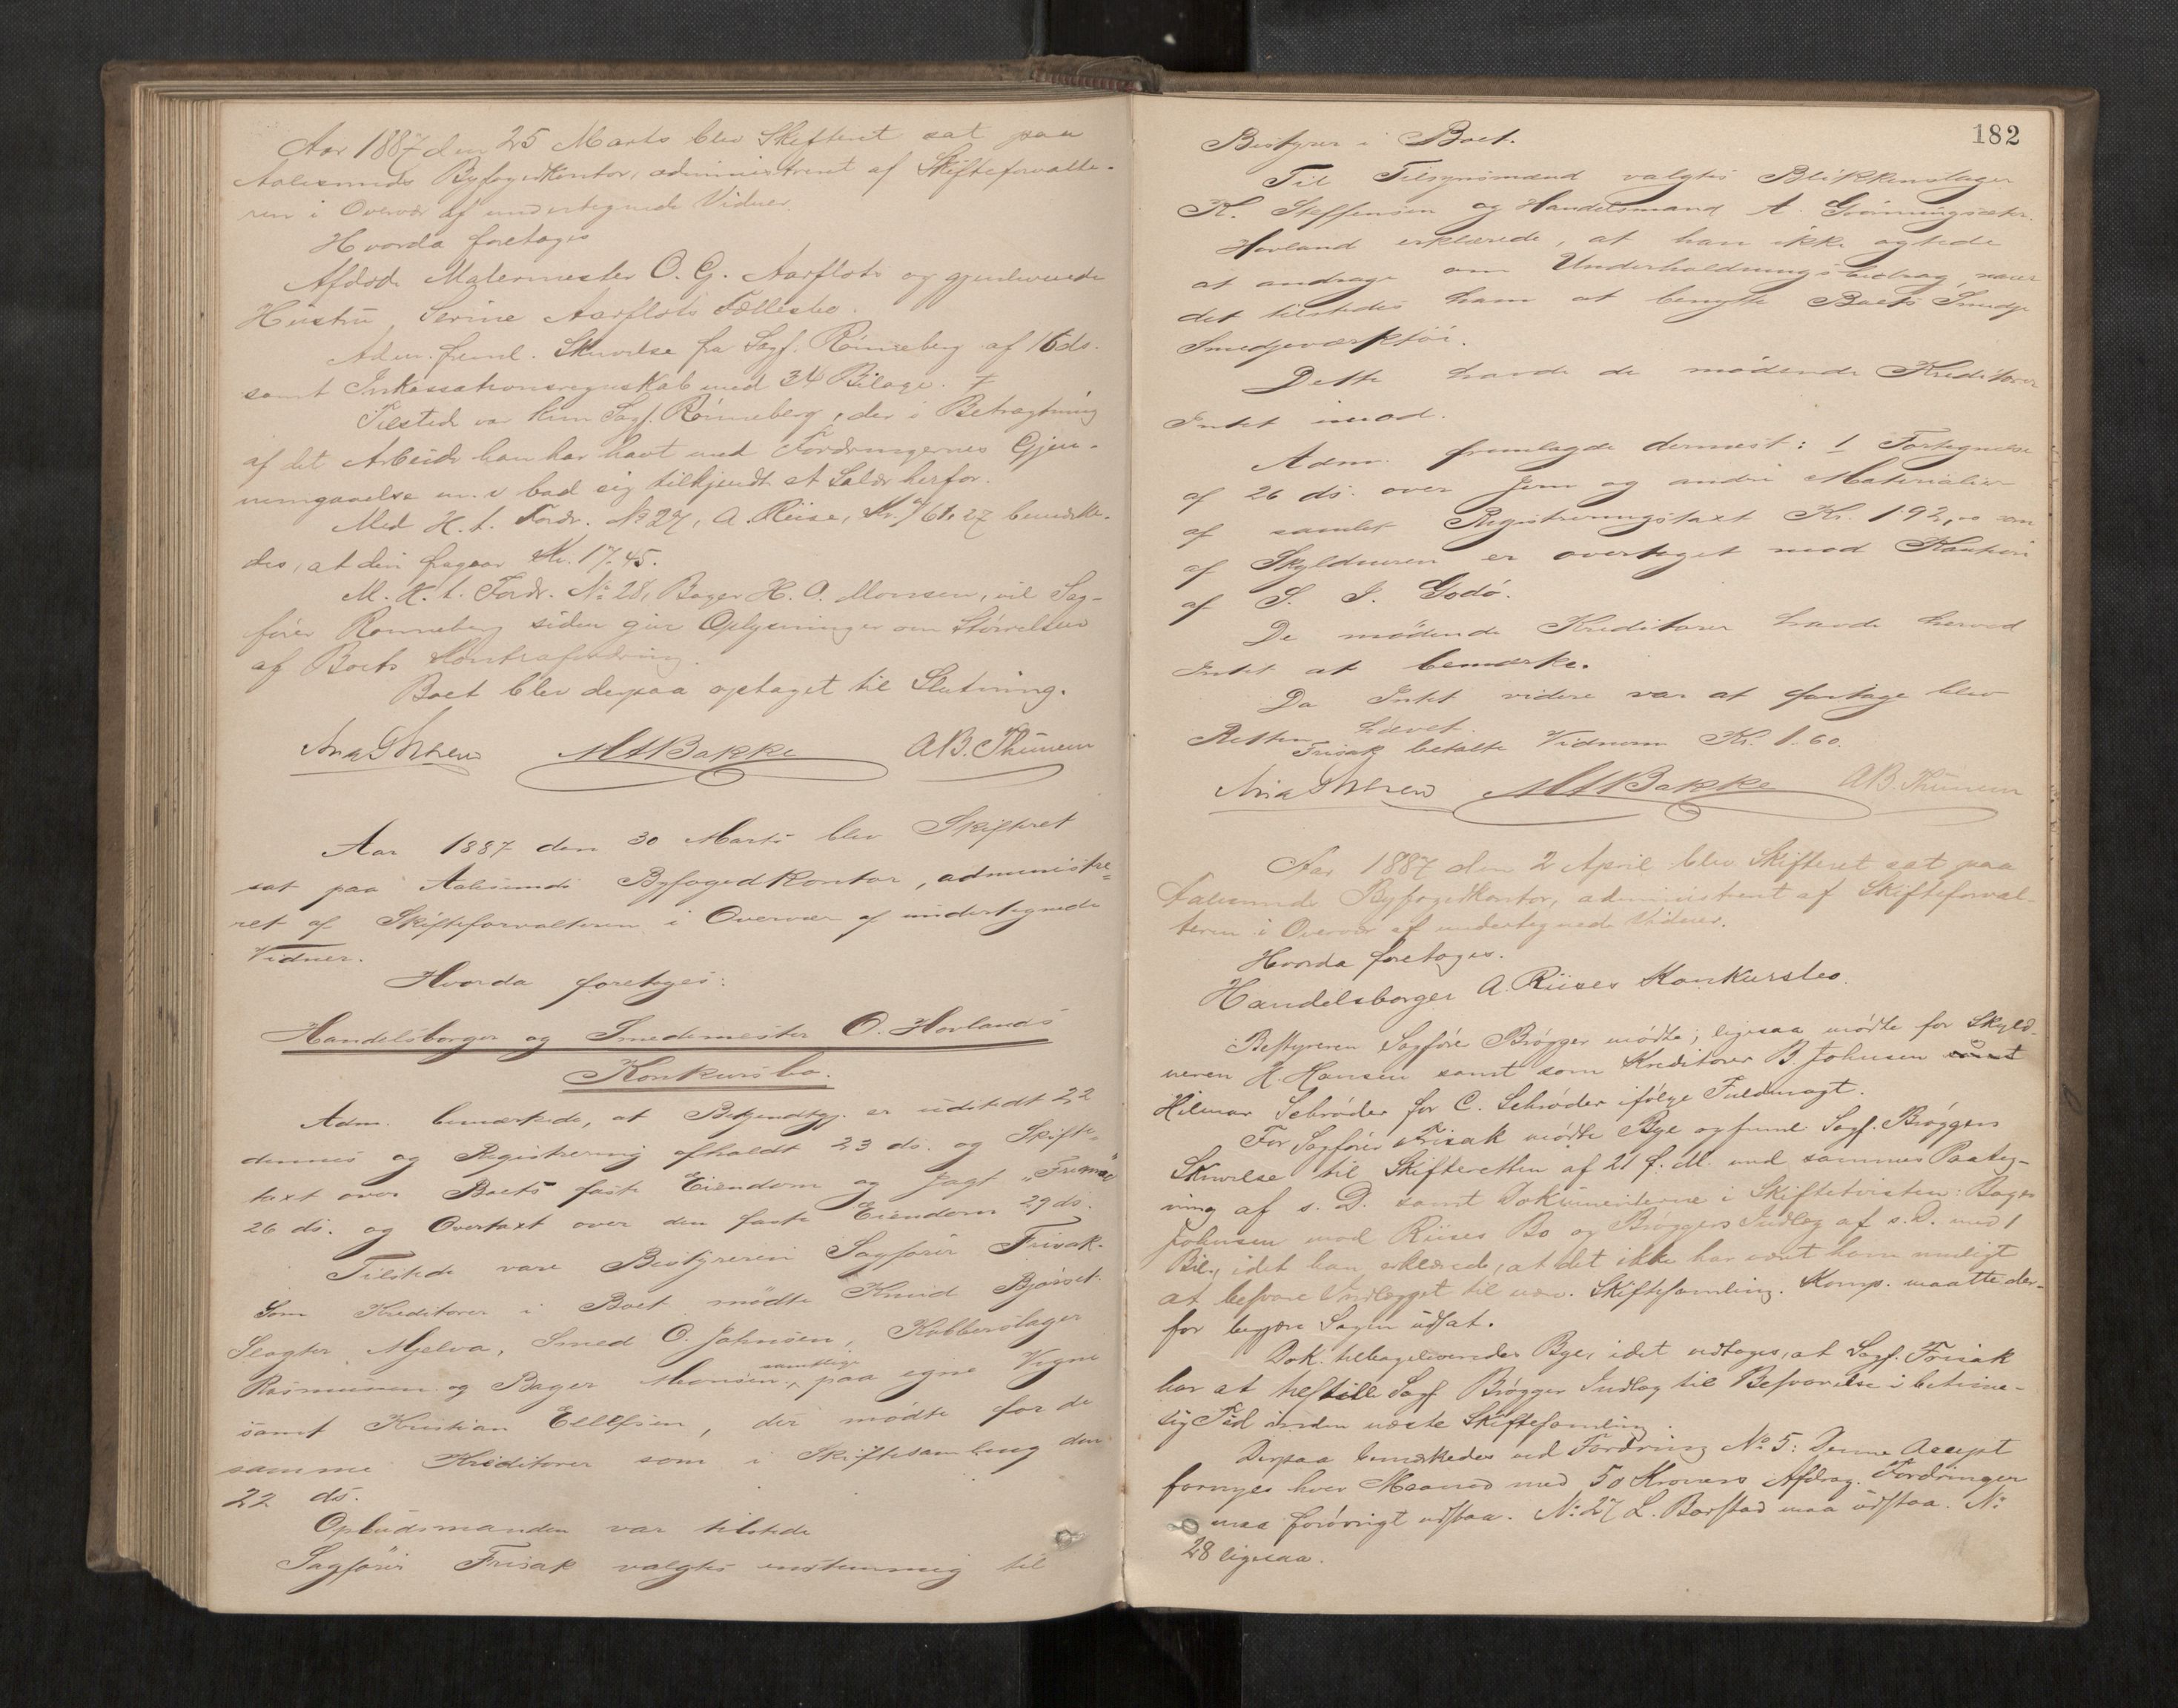 Aar 1887 den 25 Marts blev Skifteret sat paa
Aalesunds Byfogedkontor, administreret af Skifteforvalte-
ren i Overvær af undertegnede Vidner.
Hvorda foretages
Afdøde Malermester O. G. Aarflots og gjenlevende
Hustru Serine Aarflots Fællesbo.
Adm. freml. Skrivelse fra Sagf. Rønneberg af 16 ds.
samt Inkassationsregnskab med 34 Bilage.
Tilstede var kun Sagf. Rønneberg, der i Betragtning
af det Arbeide han har havt med Fordringernes Gjen-
nemgaaelse m. v. bad sig tilkjendt et Salær herfor.
Med H. t. Fordr. No 27, A. Riise, Kr. 61,27 bemærke-
des, at den fragaar Kr. 17.45.
M. H. t. Fordr. No 28, Bager H. A. Monsen, vil Sag-
fører Rønneberg siden give Oplysninger om Størrelsen
af Boets Kontrafordring.
Boet blev derpaa optaget til Slutning.
MABakke A.B. Thunem
Aar 1887 den 30 Marts blev Skifteret
sat paa Aalesunds Byfogedkontor, administre=
ret af Skifteforvalteren i Overvær af undertegnede
Vidner.
Hvorda foretoges:
Handelsborger og Smedemester O. Hovlands
Konkursbo.
Adm. bemærkede, at Bekjendtgj. er udstedt 22
dennes og Registrering afholdt 23 ds. og Skifte=
taxt over Boets faste Eiendom og Jagt
26 ds. og Overtaxt over den faste Eiendom 29 ds.
Tilstede vare Bestyreren Sagfører Frisak.
Som Kreditorer i Boet mødte Knud Bjørset
Slagter Mjelva, Smed O. Johnsen, Kobberslager
Rasmussen og Bager Monsen, samtlige paa egne Vegne
samt Kristian Ellefsen, der mødte for de
samme Kreditorer som i Skiftesamling den
22 ds.
Opbudsmanden var tilstede
Sagfører Frisak valgtes enstemmig til
182
Bestyrer i Boet.
Til Tilsynsmænd valgtes Blikkenslager
K. Steffensen og Handelsmand A. Grønningsæter.
Hovland erklærede, at han ikke agtede
at andrage om Underholdningsbidrag, naar
det tilstedes ham at benytte Boets Smedje
Smedjeværktøi.
Dette havde de mødende Kreditorer
Intet imod.
Adm. fremlagde dernæst: 1 Fortegnelse
af 26 ds. over Jern og andre Materialier
af samlet Registreringstaxt Kr. 192,00 som
af Skyldneren er overtaget mod Kaution
af S. I. Godø.
De mødende Kreditorer havde herved
Intet at bemærke.
Da Intet videre var at foretage blev
Retten hævet.
Frisak betalte Vidnerne Kr. 1.60.
MABakke A.B. Thunem
Aar 1887 den 2 April blev Skifteret sat paa
Aalesunds Byfogedkontor, administreret af Skifteforval-
teren i Overvær af undertegnede Vidner.
Hvorda foretoges.
Handelsborger A. Riises Konkursbo.
Bestyreren Sagfører Brøgger mødte; ligesaa mødte for Skyld-
neren H. Hansen samt som Kreditorer B. Johnsen
Hilmar Schrøder for C. Schrøder ifølge Fuldmagt.
For Sagfører Frisak mødte Bye og freml. Sagf. Brøggers
Skrivelse til Skifteretten af 21 f. M. med sammes Paateg-
ning af s. D. samt Dokumenterne i Skiftetvisten: Bager
Johnsen mod Riises Bo og Brøggers Indlæg af s. D. med 1
Bil., idet han erklærede, at det ikke har været ham muligt
at besvare Indlægget til nærv. Skiftesamling. Komp. maatte der-
for begjære Sagen udsat.
Dok. tilbageleveredes Bye, idet vedtoges, at Sagf. Frisak
har at tilstille Sagf. Brøgger Indlæg til Besvarelse i betime-
lig Tid inden næste Skiftesamling.
Derpaa bemærkedes ved Fordring No 5: Denne Accept
fornyes hver Maaned med 50 Kroners Afdrag. Fordringen
maa forøvrigt udstaa. No 27 L. Barstad maa udstaa. No
28 ligesaa.